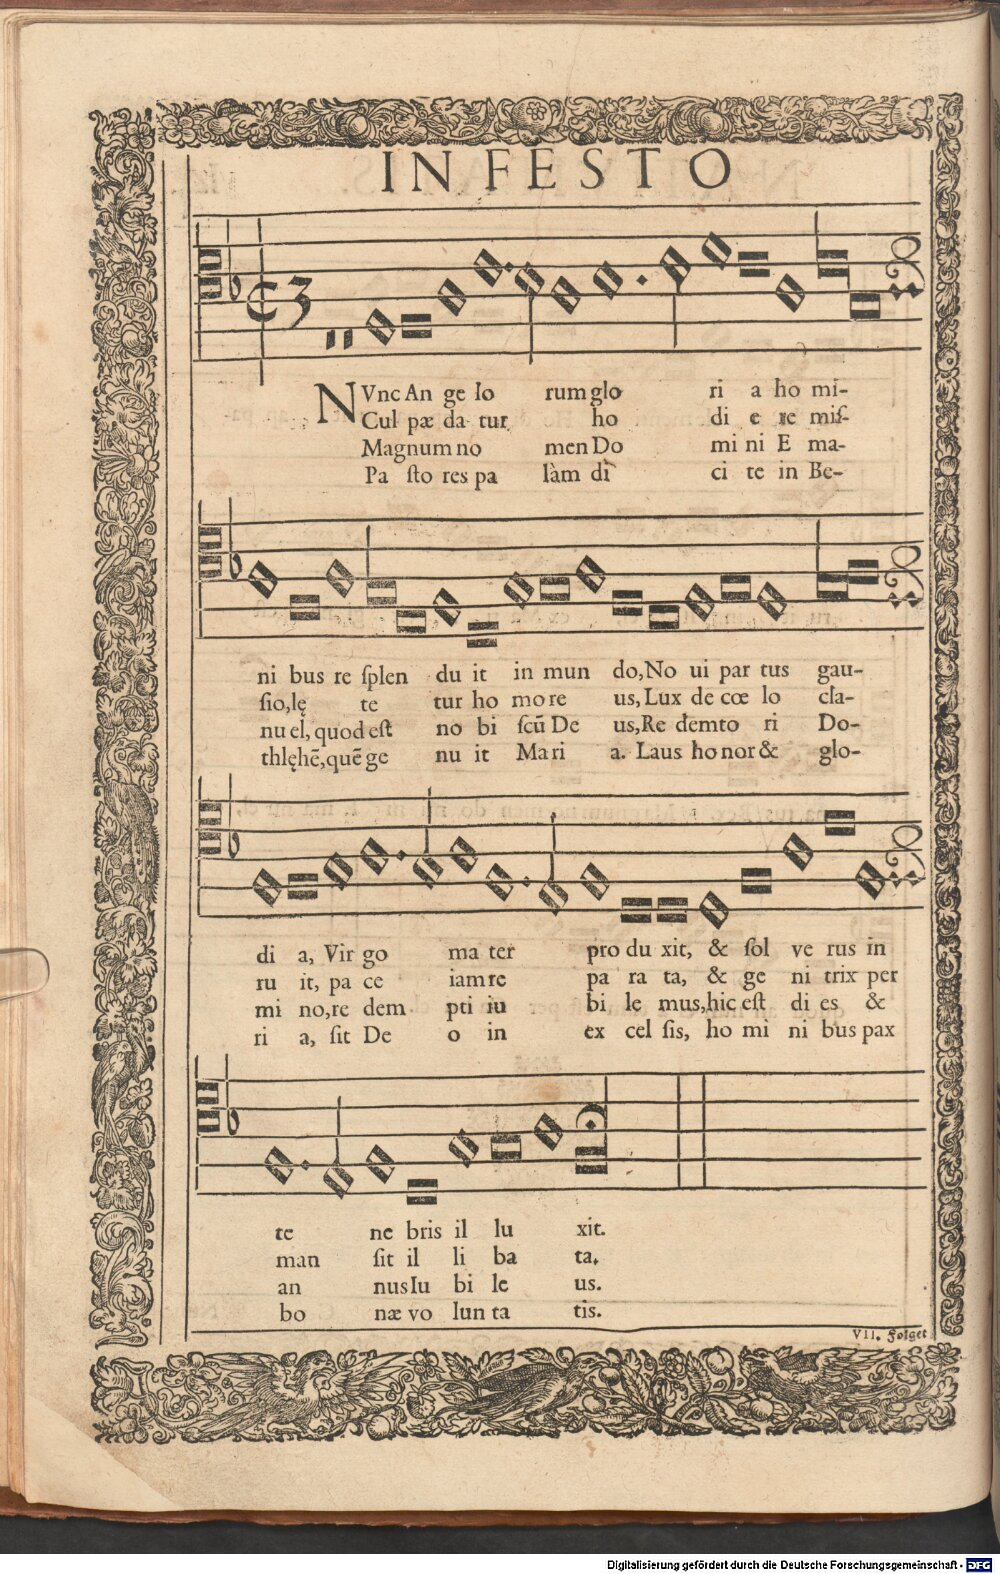 IN FESTO
NVnc An ge lo rum glo ri a ho mi-
Cul pæ da tur ho di e re miſ
Magnum no men Do mi ni E ma-
Pa ſto res pa làm dì ci te in Be-
ni bus re ſplen du it in mun do, No ui par tus gau-
ſio, lę te tur ho mo re us, Lux de cœ lo cla-
nu el, quod eſt no bi ſcũ De us, Re demto ri Do-
thlęhẽ, quẽ ge nu it Ma ri a. Laus ho nor & glo-
di a, Vir go ma ter pro du xit, & ſol ve rus in
ru it, pa ce iam re pa ra ta, & ge ni trix per
mi no, re dem pti iu bi le mus, hic eſt di es &
ri a, ſit De o in ex cel ſis, ho mi ni bus pax
te ne bris il lu xit.
man ſit il li ba ta.
an nus Iu bi le us.
bo næ vo lun ta tis.
VII. Folget
Digitalisierung gefördert durch die Deutsche Forschungsgemeinschaft - DFG